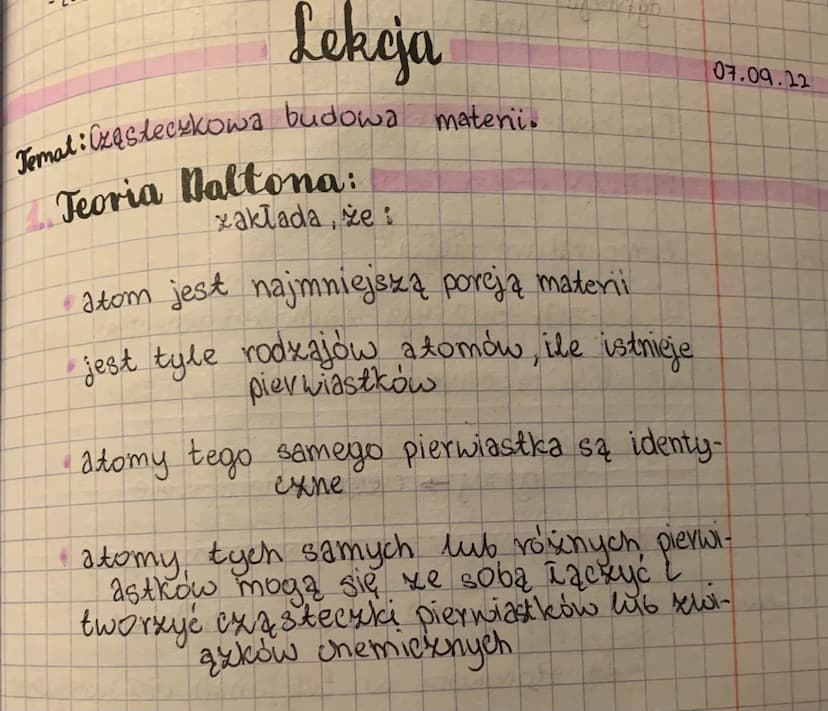 Lekcja
07.09.22
Temat: Cząsteczkowa budowa materii.
1. Teoria Daltona:
zakłada, że:
• atom jest najmniejszą porcją materii
• jest tyle rodzajów atomów, ile istnieje
pierwiastków
• atomy tego samego pierwiastka są identy-
czne
• atomy tych samych lub różnych pierwi-
astków mogą się ze sobą łączyć i
tworzyć cząsteczki pierwiastków lub zwi-
ązków chemicznych